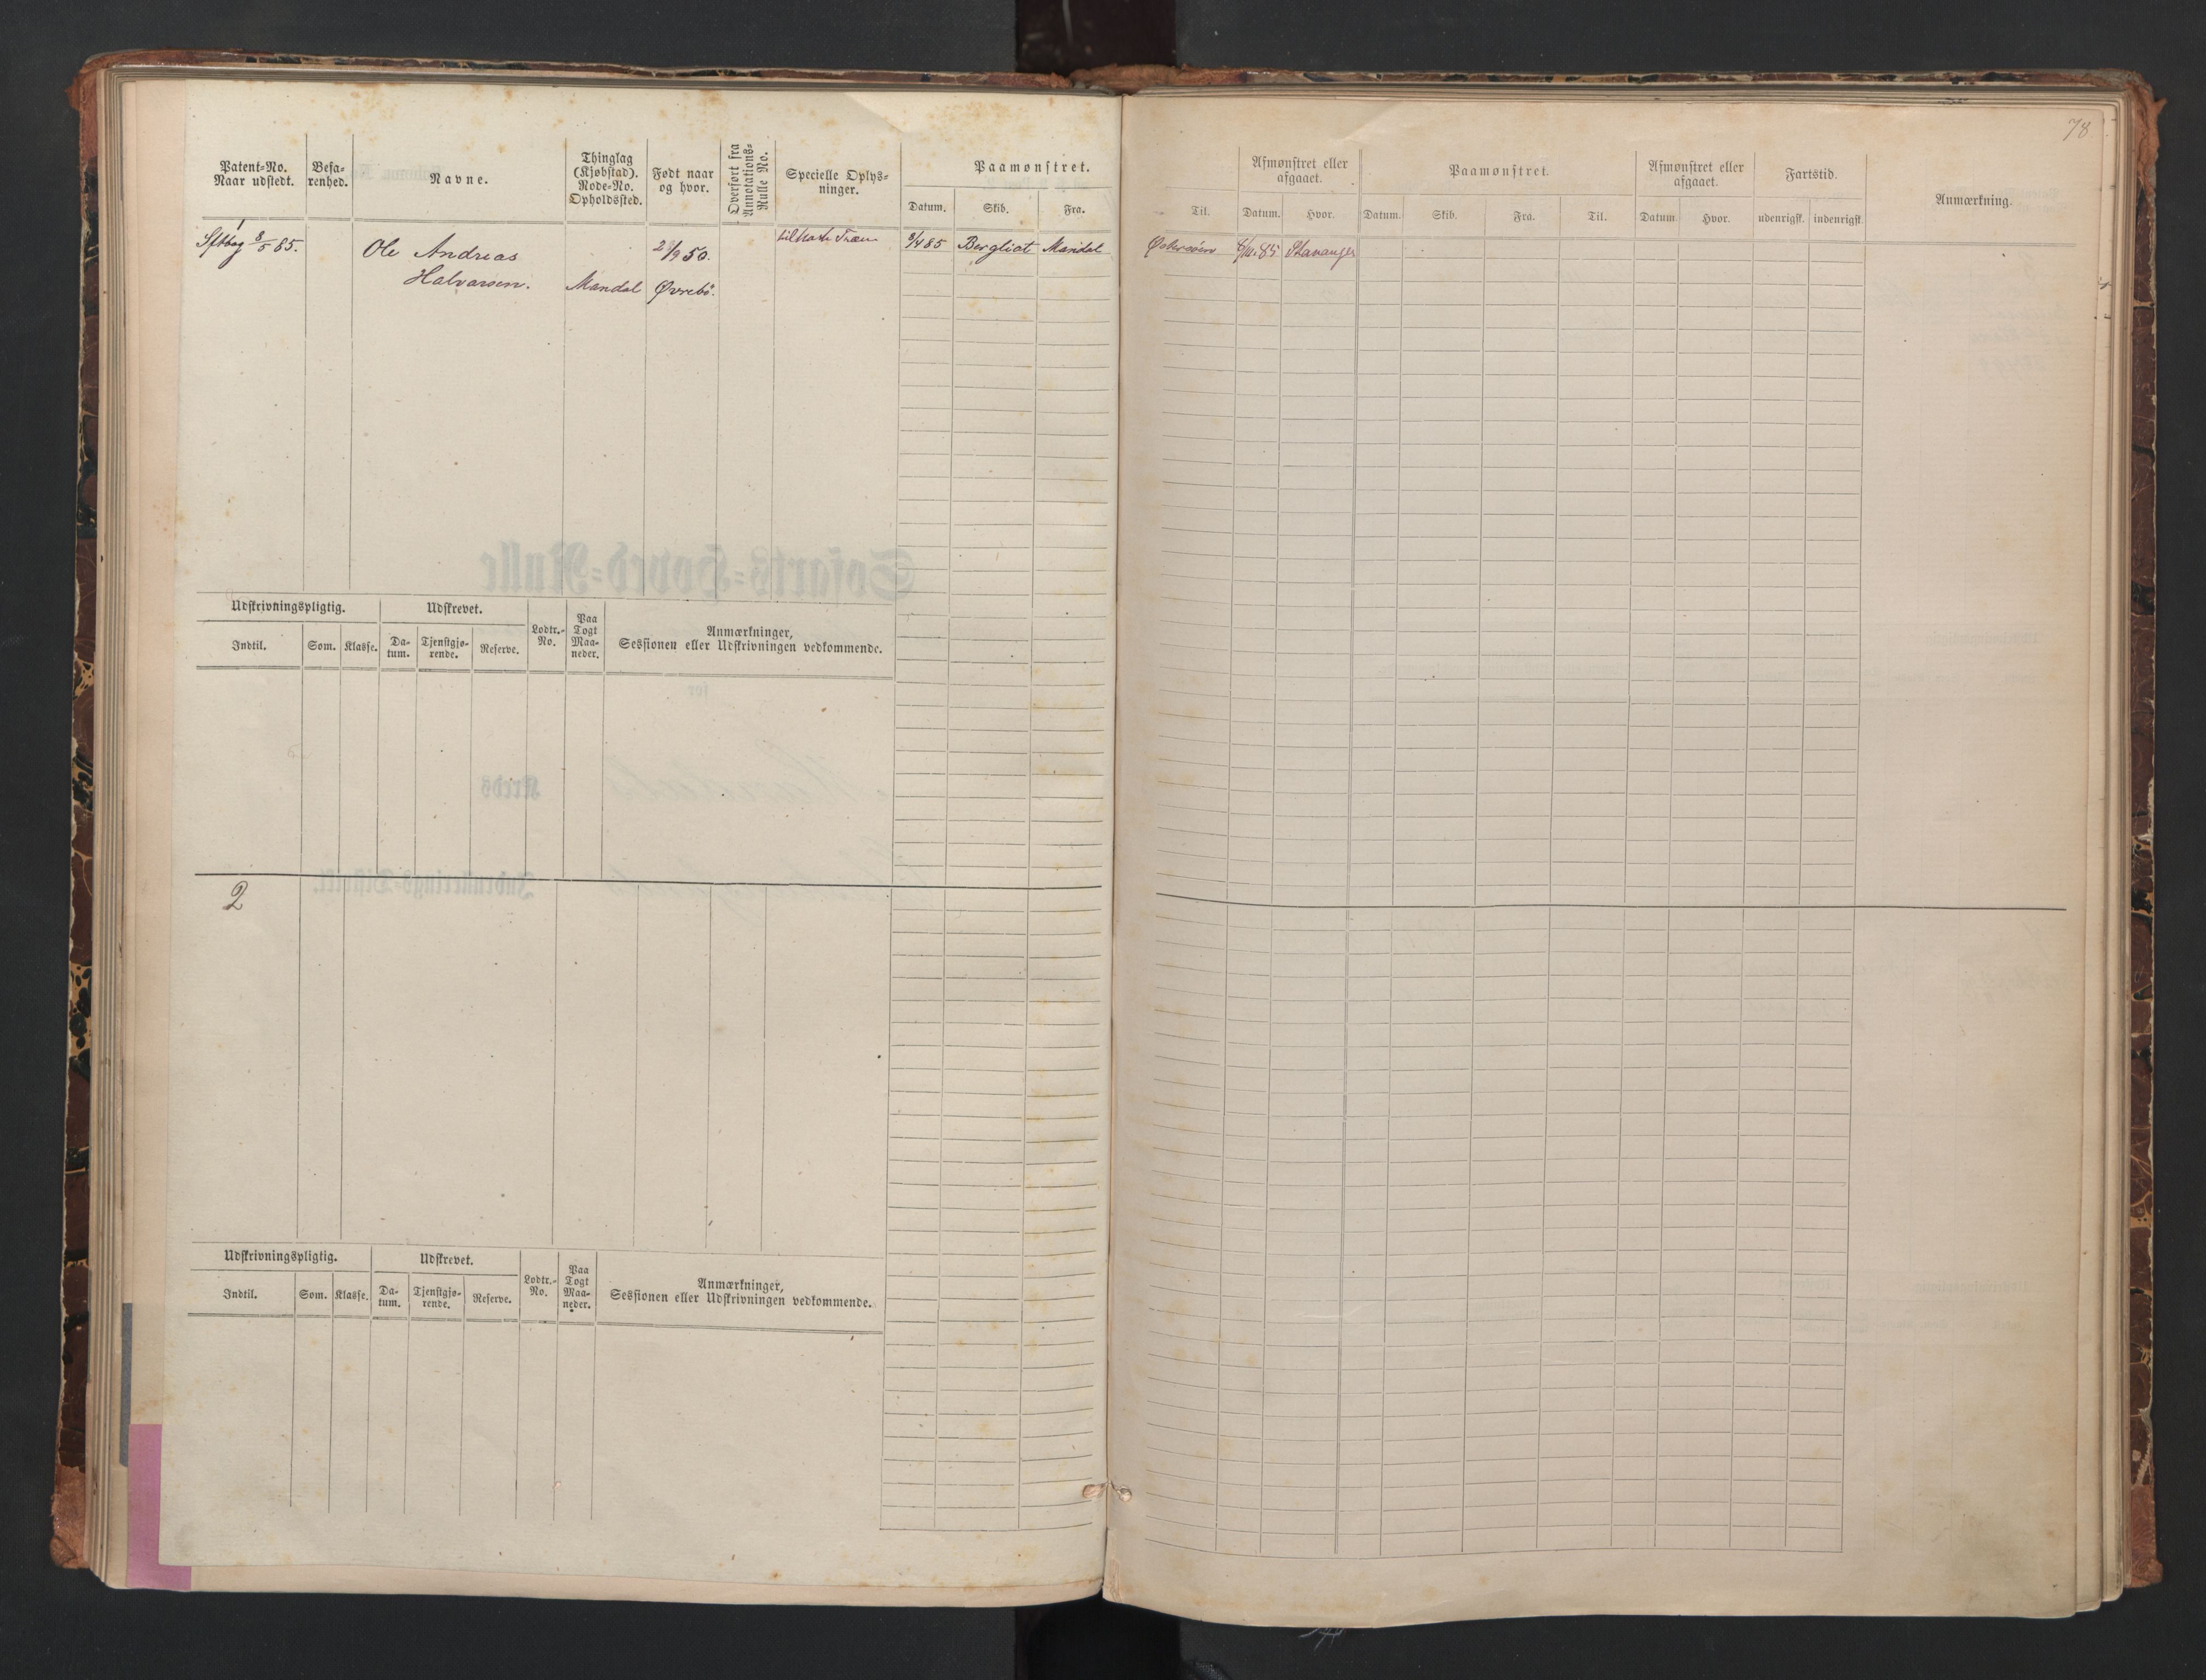 78
Patent-No.
Naar udstedt.
Befa-
renhed.
Navne.
Thinglag
(Kjøbstad).
Rode-No.
Opholdssted.
Født naar
og hvor.
Overført fra
Annotations-
Rulle No.
Specielle Oplys-
ninger.
Paamønstret.
Datum.
Skib.
Fra.
Til.
Afmønstret eller
afgaaet.
Datum.
Hvor.
Paamønstret.
Datum.
Skib.
Fra.
Til.
Afmønstret eller
afgaaet.
Datum
Hvor.
Fartstid.
udenrigsk.
indenrigsk.
Anmærkning.
1
Sftbog 8/5 85.
Ole Andreas
Halvorsen.
Mandal
2/9 50.
Øvrebø.
8/4 85
Bergliot
Mandal
Østersøen
85
Stavanger
Udskrivningspligtig.
Udskrevet.
Lodtr.-
No.
Paa
Togt
Maa-
neder.
Anmærkninger,
Sessionen eller Udskrivningen vedkommende.
Indtil.
Som.
Klasse.
Da-
tum.
Tjenstgjø-
rende.
Reserve.
2
Udskrivningspligtig.
Udskrevet.
Lodtr.-
No.
Paa
Togt
Maa-
neder.
Anmærkninger,
Sessionen eller Udskrivningen vedkommende.
Indtil.
Som.
Klasse.
Da-
tum.
Tjenstgjø-
rende.
Reserve.